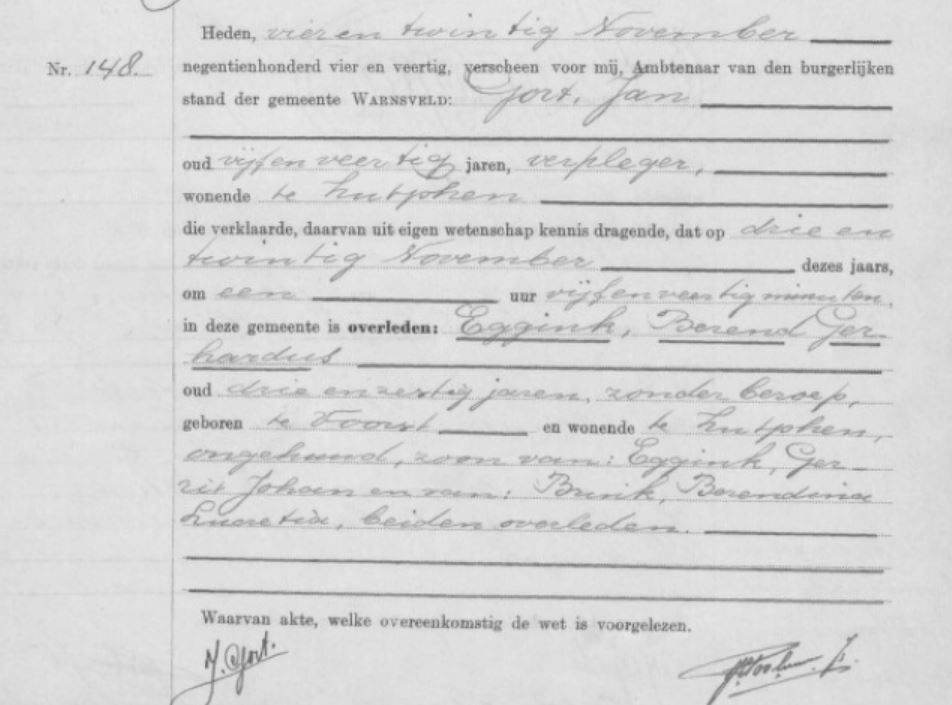 Heden, vier en twintig November
Nr. 148. negentienhonderd vier en veertig, verscheen voor mij, Ambtenaar van den burgerlijken
stand der gemeente WARNSVELD: Gort, Jan
oud vijf en veertig jaren, verpleger,
wonende te Zutphen
die verklaarde, daarvan uit eigen wetenschap kennis dragende, dat op drie en
twintig November dezes jaars,
om een uur vijf en veertig minuten,
in deze gemeente is overleden: Eggink, Berend Ger-
hardus
oud drie en zestig jaren, zonder beroep,
geboren te Voorst en wonende te Zutphen,
ongehuwd, zoon van: Eggink, Ger-
rit Johan en van: Brink, Berendina
Lucretia, beiden overleden.
Waarvan akte, welke overeenkomstig de wet is voorgelezen.
J. Gort.